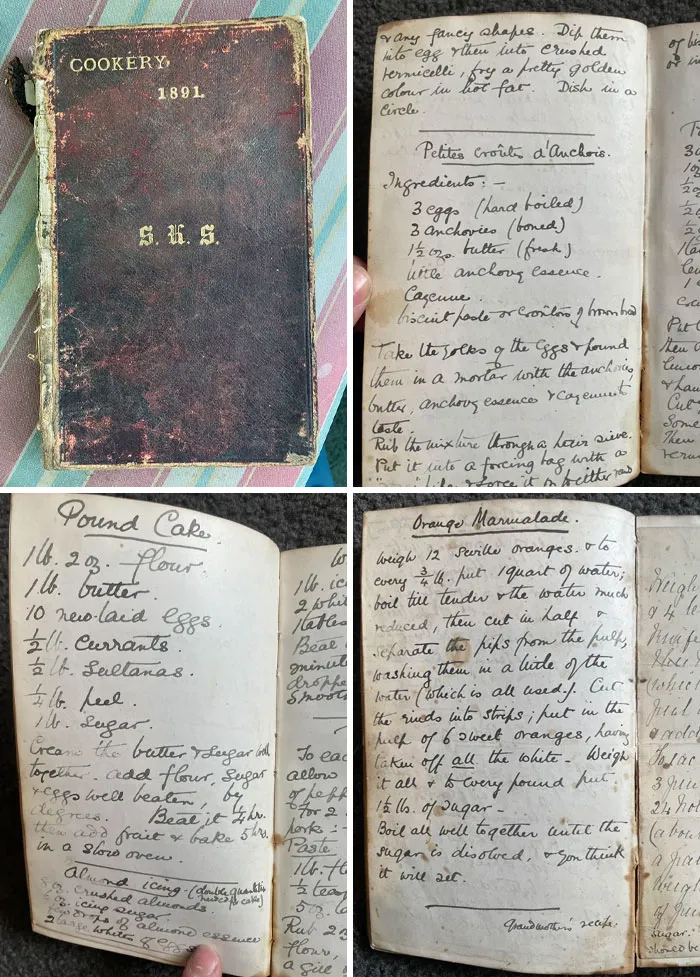 COOKERY,
1891.
S. K. S.
& any fancy shapes. Dip them
into egg & then into crushed
vermicelli, fry a pretty golden
colour in hot fat. Dish in a
circle.
Petites Croûtes d'Anchois.
Ingredients:—
3 eggs (hard boiled)
3 anchovies (boned)
1½ ozs. butter (fresh)
little anchovy essence.
Cayenne.
biscuit paste or croûtons of brown bread
Take the yolks of the eggs & pound
them in a mortar with the anchovies,
butter, anchovy essence & cayenne to
taste.
Rub the mixture through a hair sieve.
Put it into a forcing bag with a
& force it on to either
of
or in
3
1
½
½
½
little
1
Put
then
& han
Cut
Some
Them
vermi
Pound Cake.
1 lb. 2 oz. flour.
1 lb. butter.
10 new-laid eggs.
½ lb. Currants.
½ lb. Sultanas.
¼ lb. peel.
1 lb. Sugar.
Cream the butter & Sugar well
together. add flour, Sugar
& eggs well beaten, by
degrees. Beat it ½ hr.
then add fruit & bake 5 hrs.
in a slow oven.
Almond icing- (double quantities
need for cake)
8 oz. crushed almonds
oz. icing sugar.
drops of almond essence
2 large whites of eggs
1 lb. ic
2 whit
1 tables
Beat
minut
droppe
Smooth
To eac
allow
of pepp
For 2
pork:-
Paste
1 lb. fl
½ teas
5 oz. la
Rub
flour,
a gill
Orange Marmalade.
Weigh 12 Seville oranges. & to
every ¾ lb. put 1 quart of water;
boil till tender & the water much
reduced, then cut in half &
separate the pips from the pulp,
washing them in a little of the
water (which is all used). Cut
the rinds into strips; put in the
pulp of 6 sweet oranges, having
taken off all the white. Weigh
it all & to every pound put
1½ lb. of sugar —
Boil all well together until the
sugar is disolved, & you think
it will set.
Grandmother's recipe.
Weigh
& 4
(whic
Just
add
To
3 Jun
24 hou
(abou
a pa
Weigh
of Jun
sugar.
should be